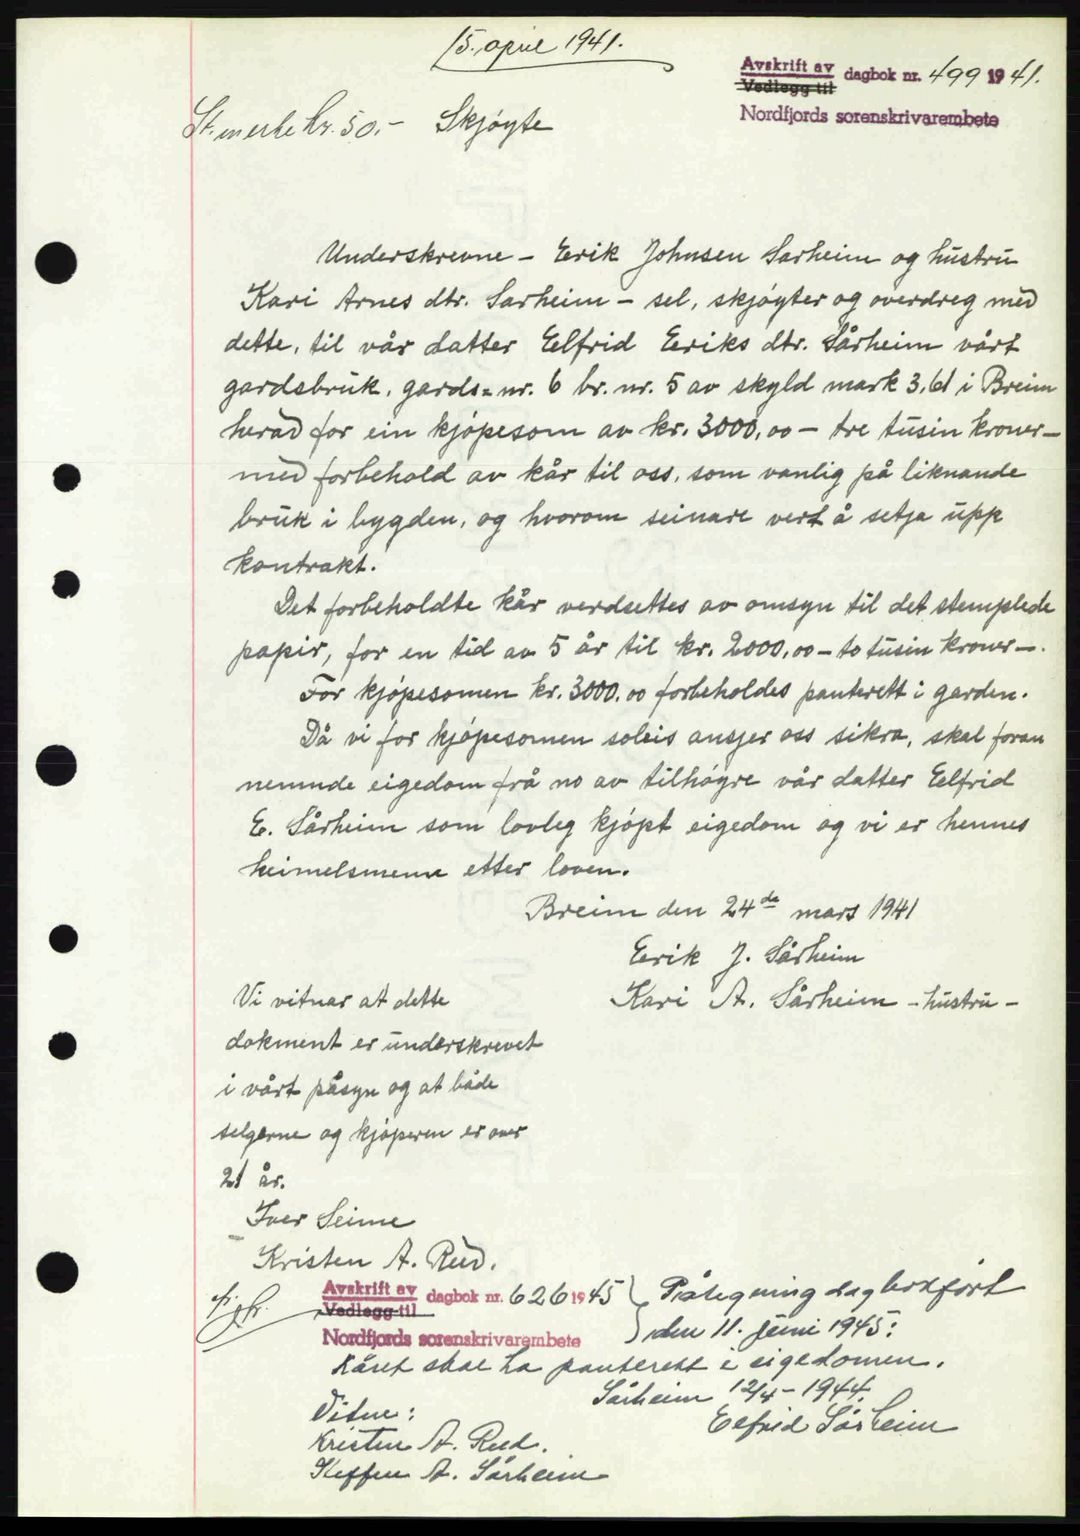 15. april 1941.
Avskrift av
Vedlegg til
dagbok nr. 499 1941.
Nordfjords sorenskrivarembete
St.merke kr. 50.- Skjøyte
Underskrevne - Erik Johnsen Sarheim og hustru
Kari Arnes dtr. Sarheim - sel, skjøyter og overdreg med
dette, til vår datter Elfrid Eeriks dtr. Sårheim vårt
gardsbruk, gards=nr. 6 br. nr. 5 av skyld mark 3,61 i Breim
herad for ein kjøpesom av kr. 3000,00 - tre tusin kroner -
med forbehold av kår til oss, som vanlig på liknande
bruk i bygden, og hvorom seinare vert å setja upp
kontrakt.
Det forbeholdte kår verdsettes av omsyn til det stemplede
papir, for en tid av 5 år til kr. 2000,00 - to tusin kroner -.
For kjøpesomen kr. 3000.00 forbeholdes panterett i garden.
Då vi for kjøpesomen soleis ansjer oss sikra, skal foran
nemnde eigedom frå no av tilhøyre vår datter Eelfrid
E. Sårheim som lovleg kjøpt eigedom og vi er hennes
heimelsmenn etter loven.
Breim den 24de mars 1941
Eerik J. Sårheim
Kari A. Sårheim - hustru -
Vi vitnar at dette
dokment er underskrevet
i vårt påsyn og at både
selgerne og kjøperen er over
21 år.
Iver Seime
Kristen A. Rud.
Avskrift av
Vedlegg til
dagbok nr. 626 1945
Nordfjords sorenskrivarembete
Påtegning dagbokført
den 11. juni 1945:
Kåret skal ha panterett i eigedomen.
Sårheim 12/4 - 1944.
Eelfrid Sårheim
Vitne:
Kristen A. Rud.
Steffen A. Sårheim